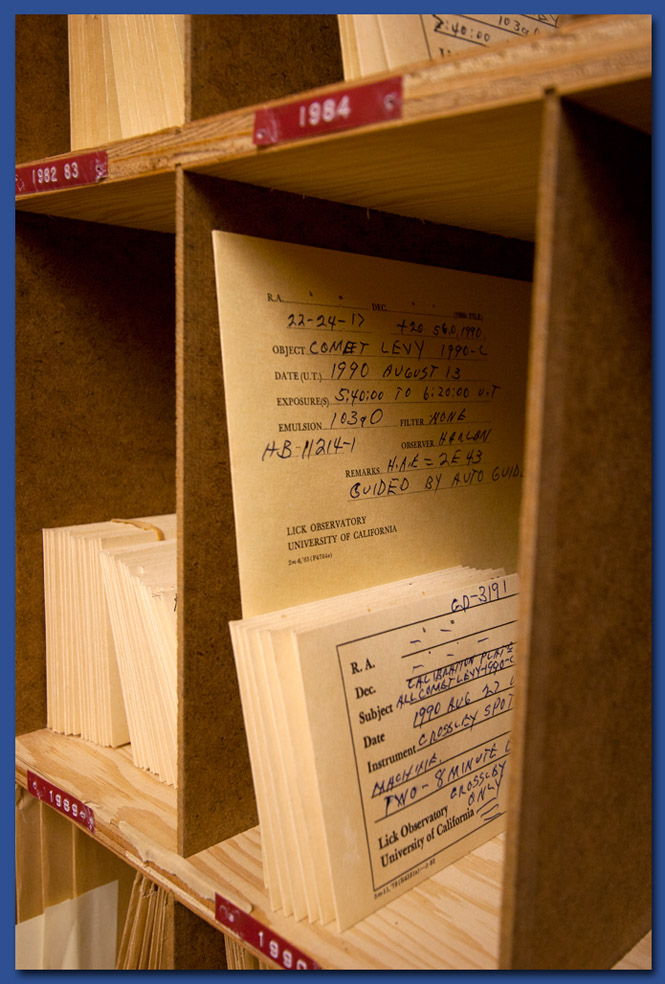 1982 83
1984
R.A. DEC.
22-24-17 +20 56.0,1990.
OBJECT COMET LEVY 1990-C
DATE (U.T.) 1990 AUGUST 13
EXPOSURE(S) 5:40:00 TO 6:20:00 U.T
EMULSION 103aO FILTER NONE
HB-11214-1 OBSERVER HARLAN
REMARKS H.A.E = 2E 43
GUIDED BY AUTO GUID
LICK OBSERVATORY
UNIVERSITY OF CALIFORNIA
GD-3191
R. A.
Dec. CALIBRATION PLATE
Subject ALL COMET LEVY-1990-C
Date 1990 AUG 27
Instrument CROSSLEY SPOT
MACHINE.
TWO - 8 MINUTE
CROSSLEY
ONLY
Lick Observatory
University of California
1989
1990